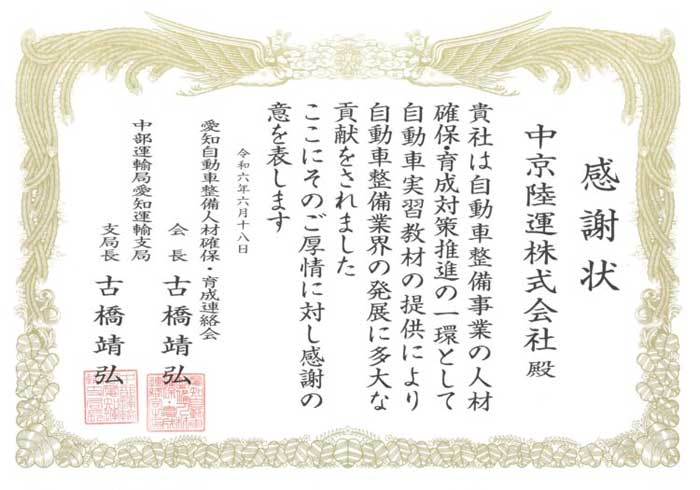 感謝状
中京陸運株式会社 殿
貴社は自動車整備事業の人材
確保・育成対策推進の一環として
自動車実習教材の提供により
自動車整備業界の発展に多大な
貢献をされました
ここにそのご厚情に対し感謝の
意を表します
令和六年六月十八日
愛知自動車整備人材確保・育成連絡会
会長 古橋靖弘
中部運輸局愛知運輸支局
支局長 古橋靖弘